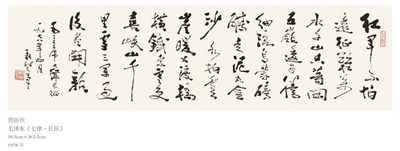 红军不怕
远征难万
水千山只等闲
五岭逶迤腾
细浪乌蒙磅
礴走泥丸金
沙水拍云
崖暖大渡桥
横铁索寒更
喜岷山千
里雪三军过
后尽开颜
毛主席 长征
一九七八年四月
费新我
毛泽东《七律·长征》
96.5cm × 363.5cm
1978 年